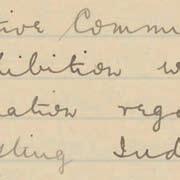 tive Commu
hibition w
mation rega
sting Ind